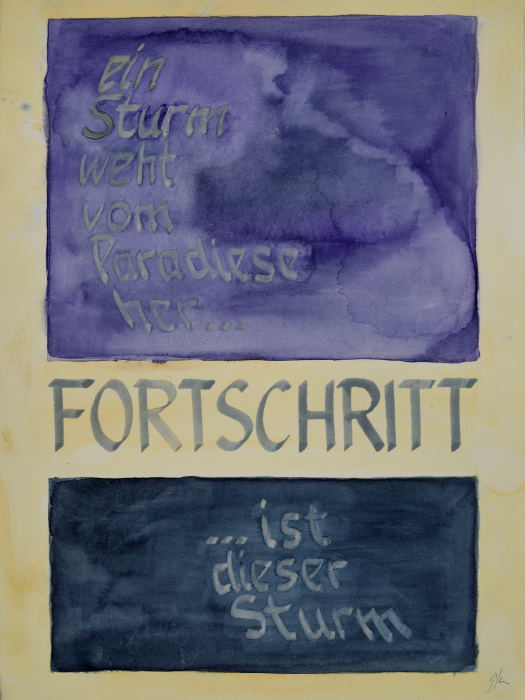 ein
Sturm
weht
vom
Paradiese
her...
FORTSCHRITT
...ist
dieser
Sturm